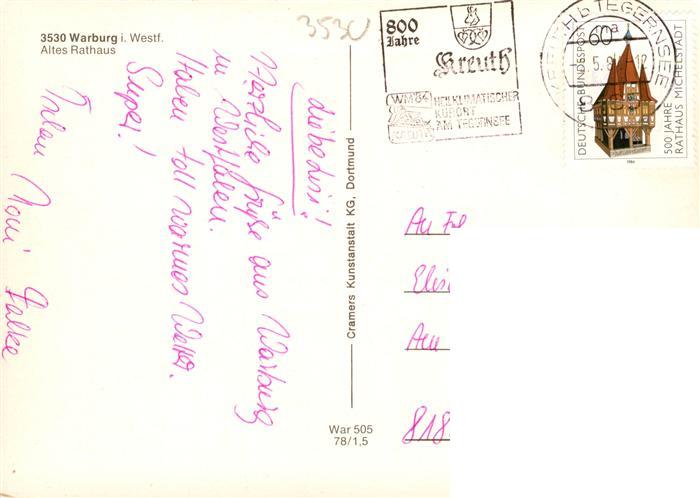 3530 Warburg i. Westf.
Altes Rathaus
3530
800
Jahre
Kreuth
HEILKLIMATISCHER
KURORT
AM TEGERNSEE
b TEGERNSEE
60
DEUTSCHE BUNDESPOST
500 JAHRE
RATHAUS MICHELSTADT
1984
Liebe Lisi!
Herzliche Grüße aus Warburg
in Westfalen.
Haben toll warmes Wetter.
Super!
Moni Falke
Cramers Kunstanstalt KG, Dortmund
An
Elis
Am
818
War 505
78/1,5